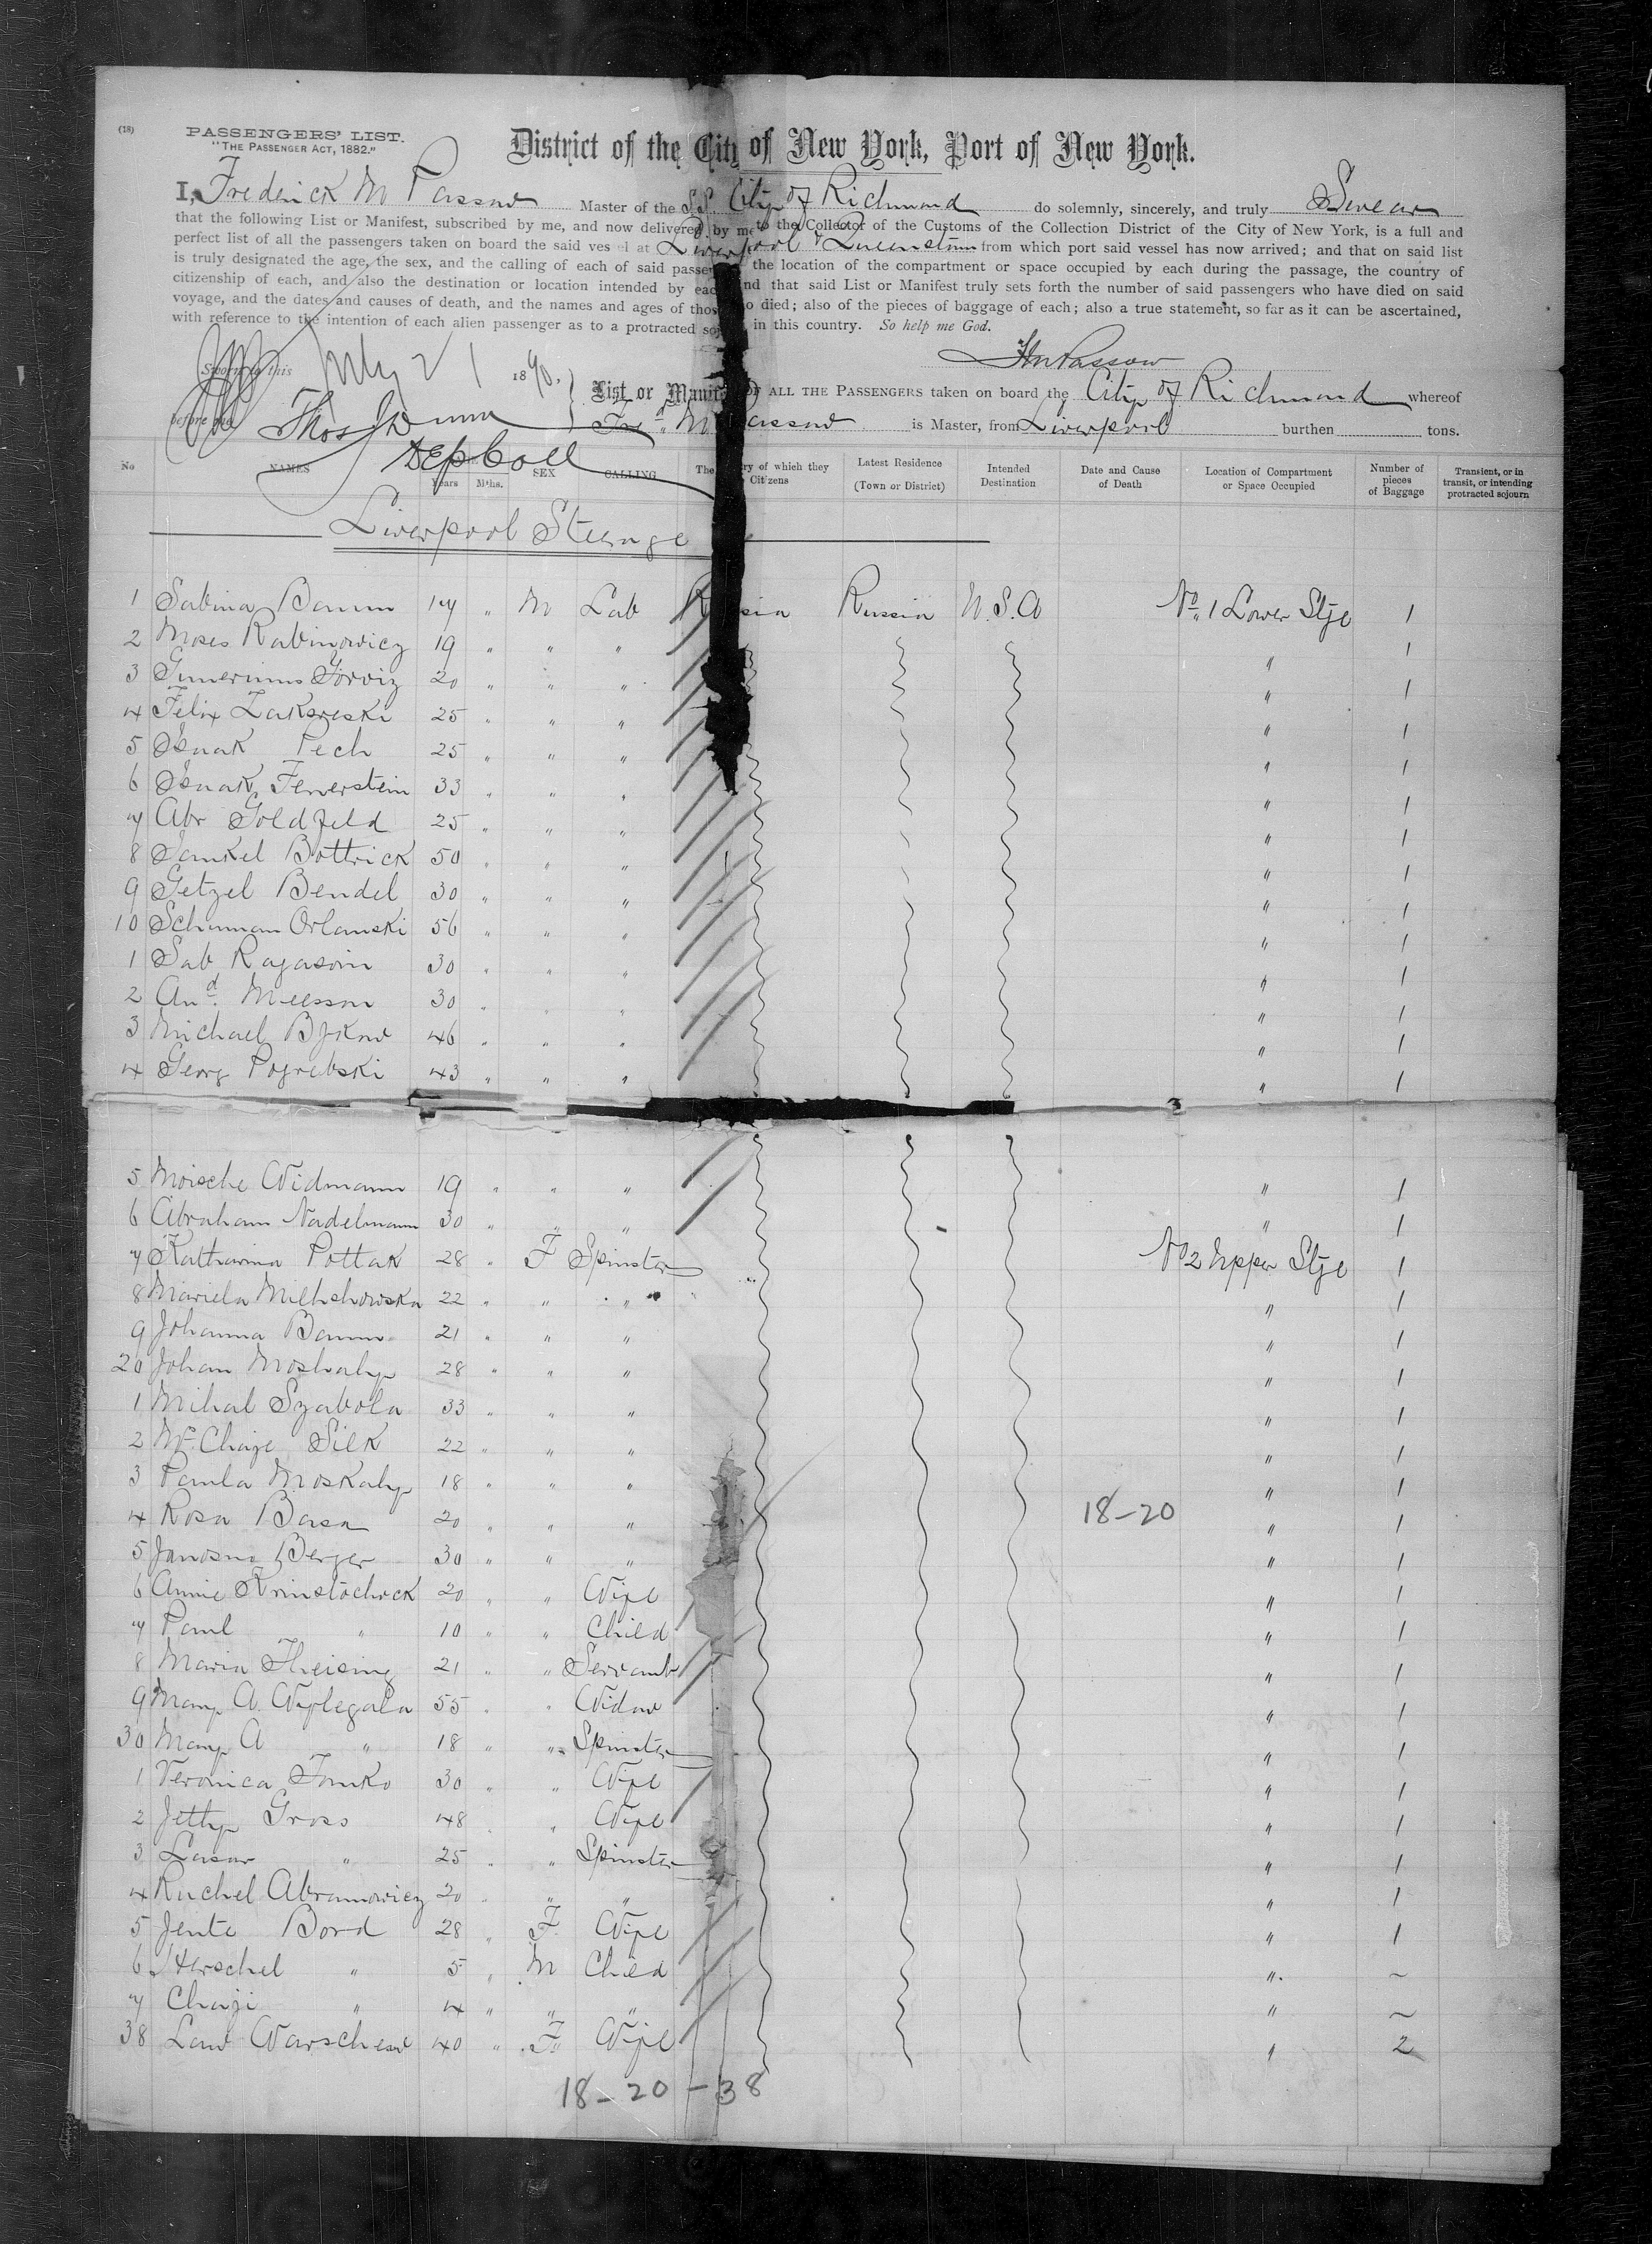 (18)
PASSENGERS' LIST.
"THE PASSENGER ACT, 1882."
District of the City of New York, Port of New York.
I, Frederick M Passow Master of the SS. City of Richmond do solemnly, sincerely, and truly Swear
that the following List or Manifest, subscribed by me, and now delivered by me to the Collector of the Customs of the Collection District of the City of New York, is a full and
perfect list of all the passengers taken on board the said vessel at Liverpool & Queenstown from which port said vessel has now arrived; and that on said list
is truly designated the age, the sex, and the calling of each of said passe the location of the compartment or space occupied by each during the passage, the country of
citizenship of each, and also the destination or location intended by eac nd that said List or Manifest truly sets forth the number of said passengers who have died on said
voyage, and the dates and causes of death, and the names and ages of thos o died; also of the pieces of baggage of each; also a true statement, so far as it can be ascertained,
with reference to the intention of each alien passenger as to a protracted so in this country. So help me God.
Sworn to this July 21 1890.
FM Passow
List or Manife OF ALL THE PASSENGERS taken on board the City of Richmond whereof
before me Thos Dunn
Fred M Passow is Master, from Liverpool burthen tons.
Dep Coll
No NAMES Years Mths. SEX CALLING The ry of which they Citizens Latest Residence (Town or District) Intended Destination Date and Cause of Death Location of Compartment or Space Occupied Number of pieces of Baggage Transient, or in transit, or intending protracted sojourn
Liverpool Steerage
1 Sabina Baum 17 " M Lab R sia Russia U.S.A No. 1 Lower Stge 1
2 Moses Rabinowicz 19 " " " " 1
3 20 " " " " 1
4 Felix Zaksreski 25 " " " " 1
5 Isaak Pech 25 " " " " 1
6 Isaak Feuerstein 33 " " " " 1
7 Abr Goldfeld 25 " " " " 1
8 Samkel Bottrick 50 " " " " 1
9 Getzel Bendel 30 " " " " 1
10 Schuman Orlanski 56 " " " " 1
1 Sab Ragasoin 30 " " " " 1
2 And. Meesson 30 " " " " 1
3 Michael Bykow 46 " " " " 1
4 Georg Pogrebski 43 " " " " 1
5 Moische Widmann 19 " " " " 1
6 Abraham Nadelmann 30 " " " " 1
7 Katharina Pottak 28 " F Spinster No 2 Upper Stge 1
8 Mariela Milhshowska 22 " " " " 1
9 Johanna Baum 21 " " " " 1
20 Johan Moskaly 28 " " " " 1
1 Mihal Szabola 33 " " " " 1
2 Chaje Silk 22 " " " " 1
3 Paula Moskaly 18 " " " " 1
4 Rosa Basa 20 " " " 18-20 " 1
5 Janosne Berger 30 " " " " 1
6 Annie Krinstochick 20 " " Wife " 1
7 Paul " 10 " " Child " 1
8 Maria Theising 21 " " Servant " 1
9 Mary A. Wiflegala 55 " " Widow " 1
30 Mary A " 18 " " Spinster " 1
1 Veronica Tomko 30 " " Wife " 1
2 Jetty Gross 48 " " Wife " 1
3 Lasar " 25 " " Spinster " 1
4 Ruchel Abramowicz 20 " " " " 1
5 Jente Bord 28 " F Wife " 1
6 Herschel " 5 " M Child " ~
7 Chaji " 4 " " " " ~
38 Law Warschew 40 " F Wife " 2
18-20-38